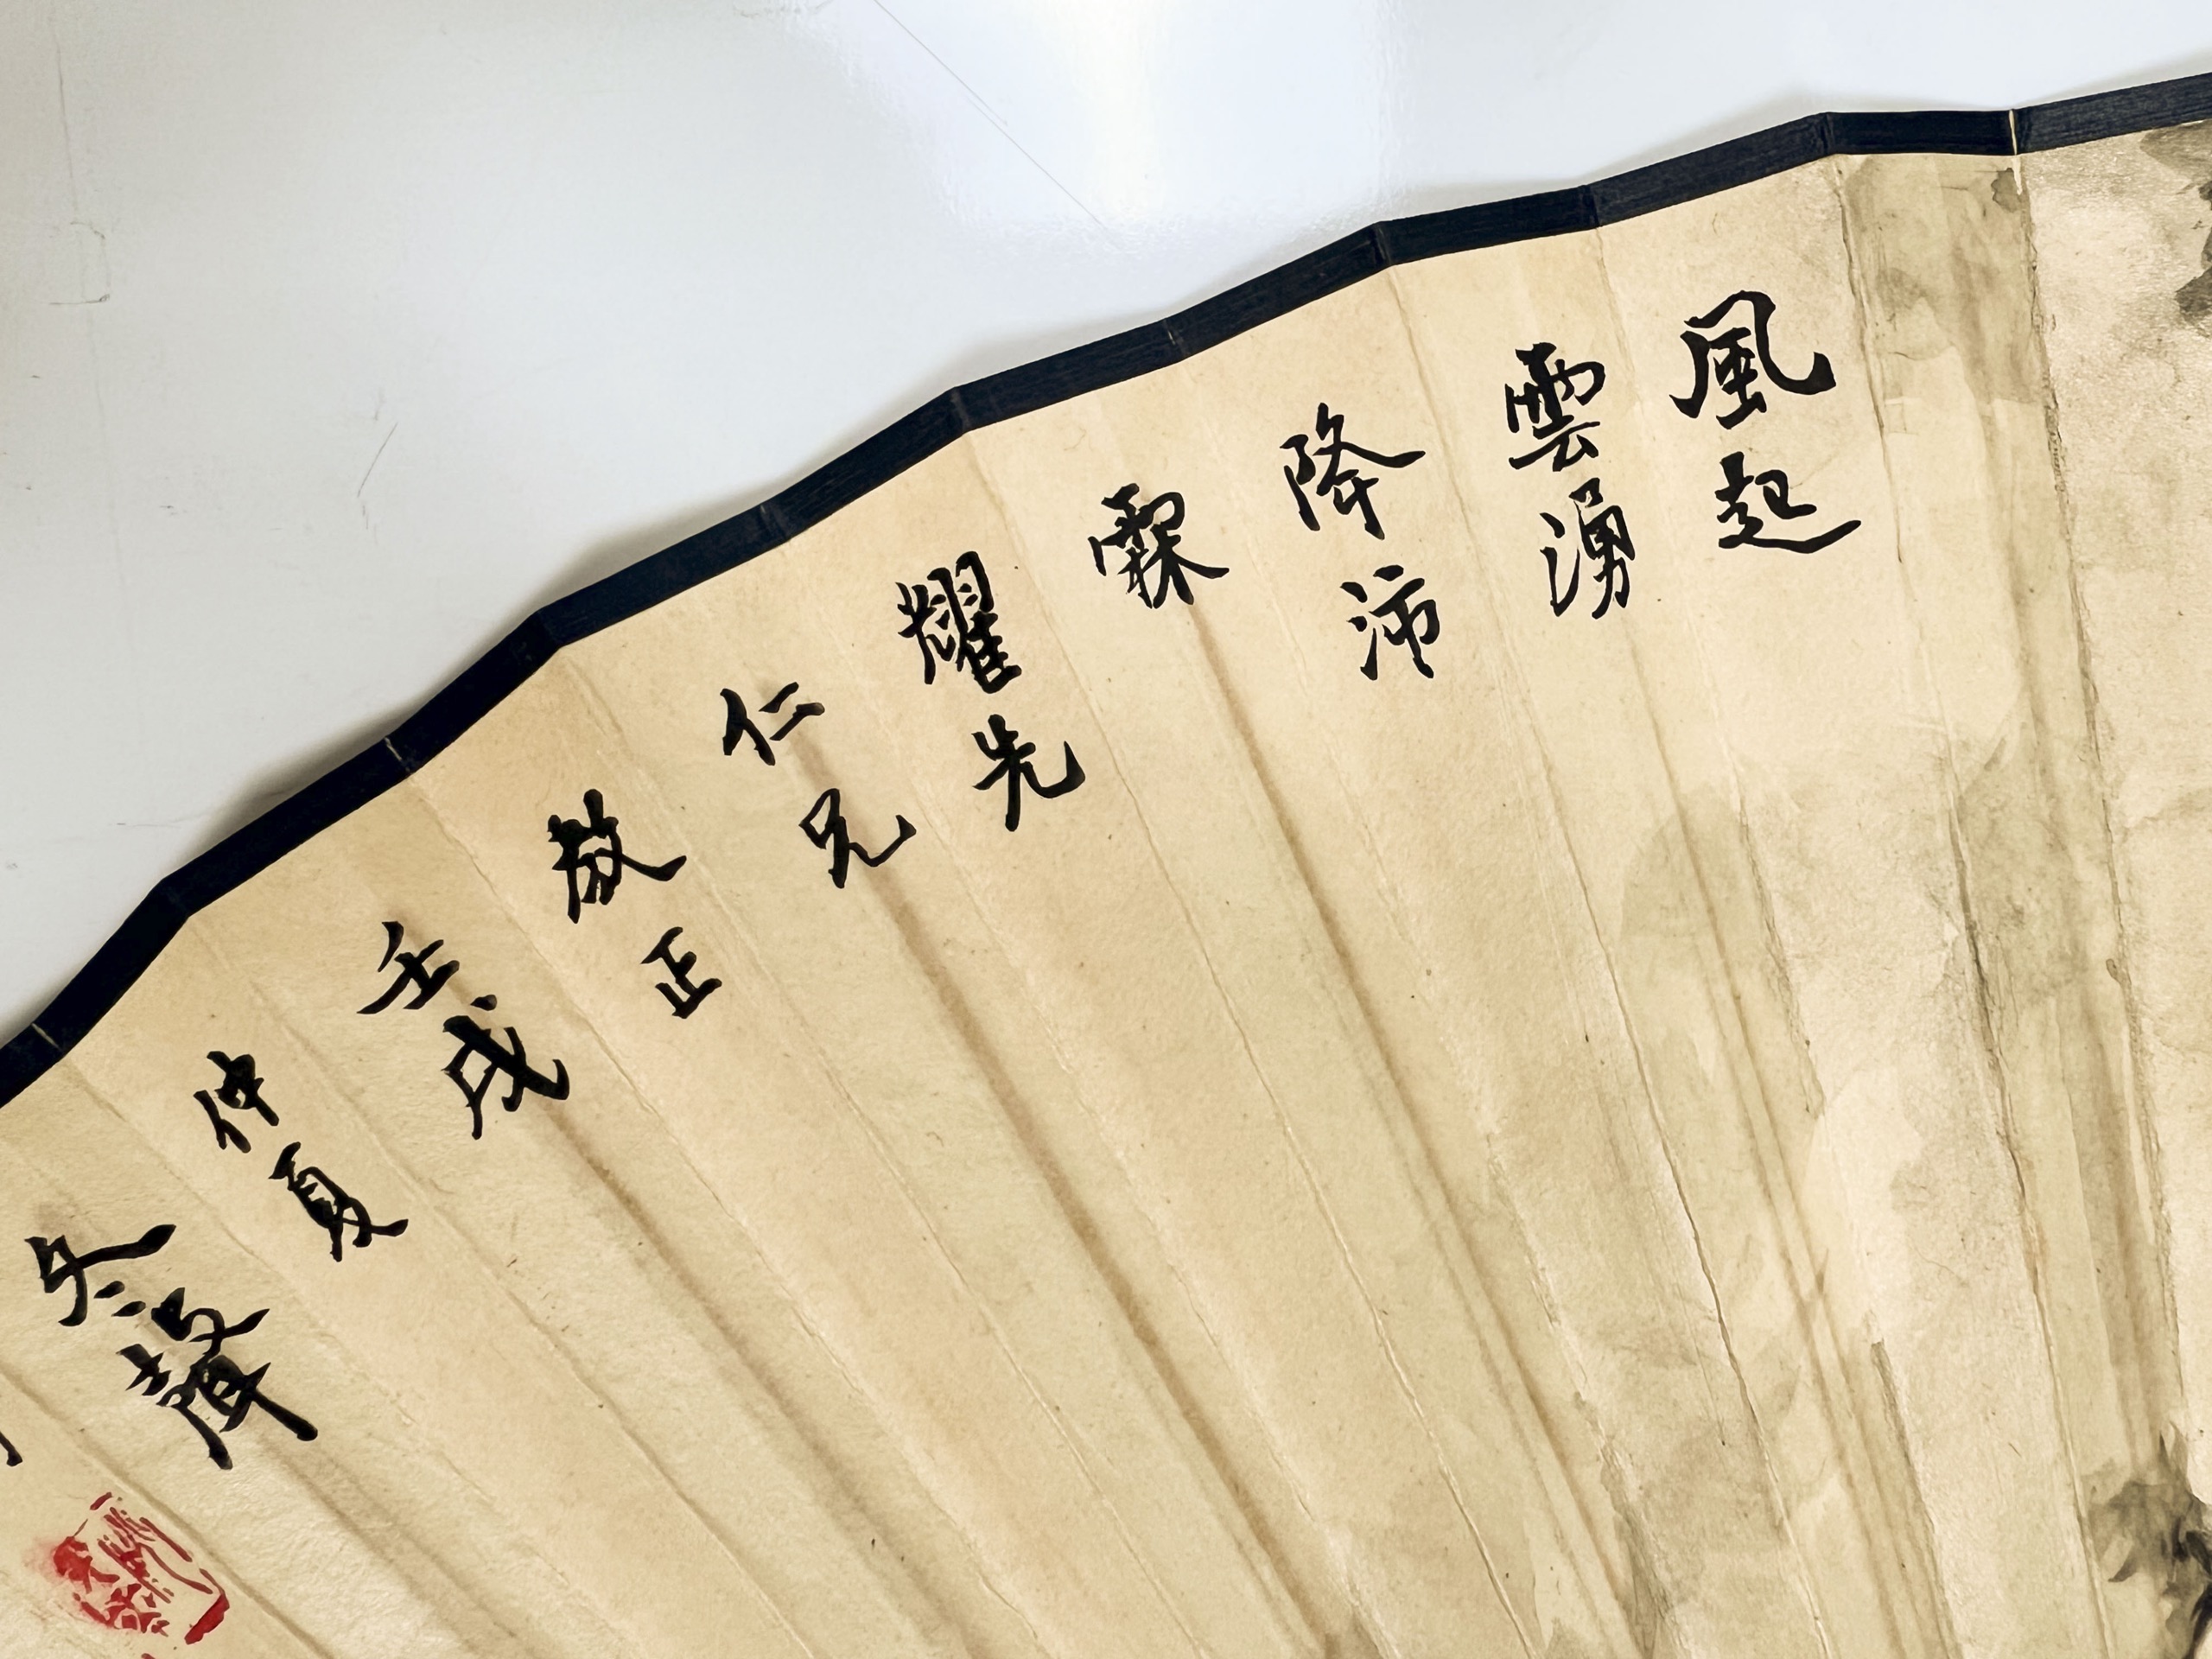 風起
雲湧
降沛
霖
耀先
仁兄
教正
壬戌
仲夏
聲